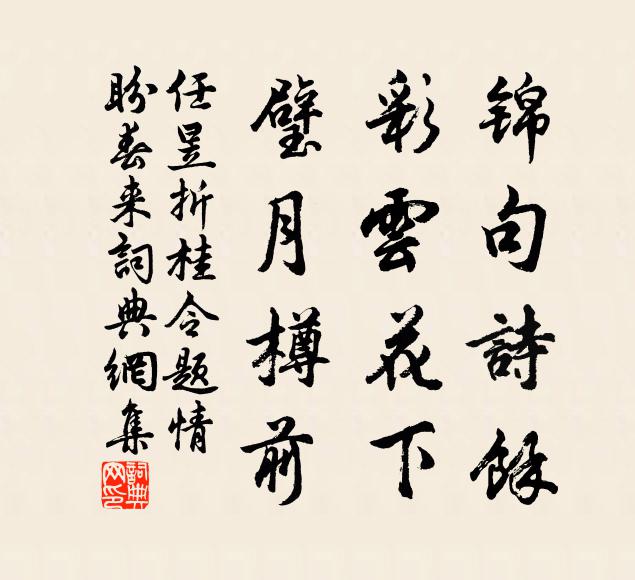 锦句詩餘
彩雲花下
璧月樽前
任昱折桂令题情
盼春来詞典網集
詞典网印